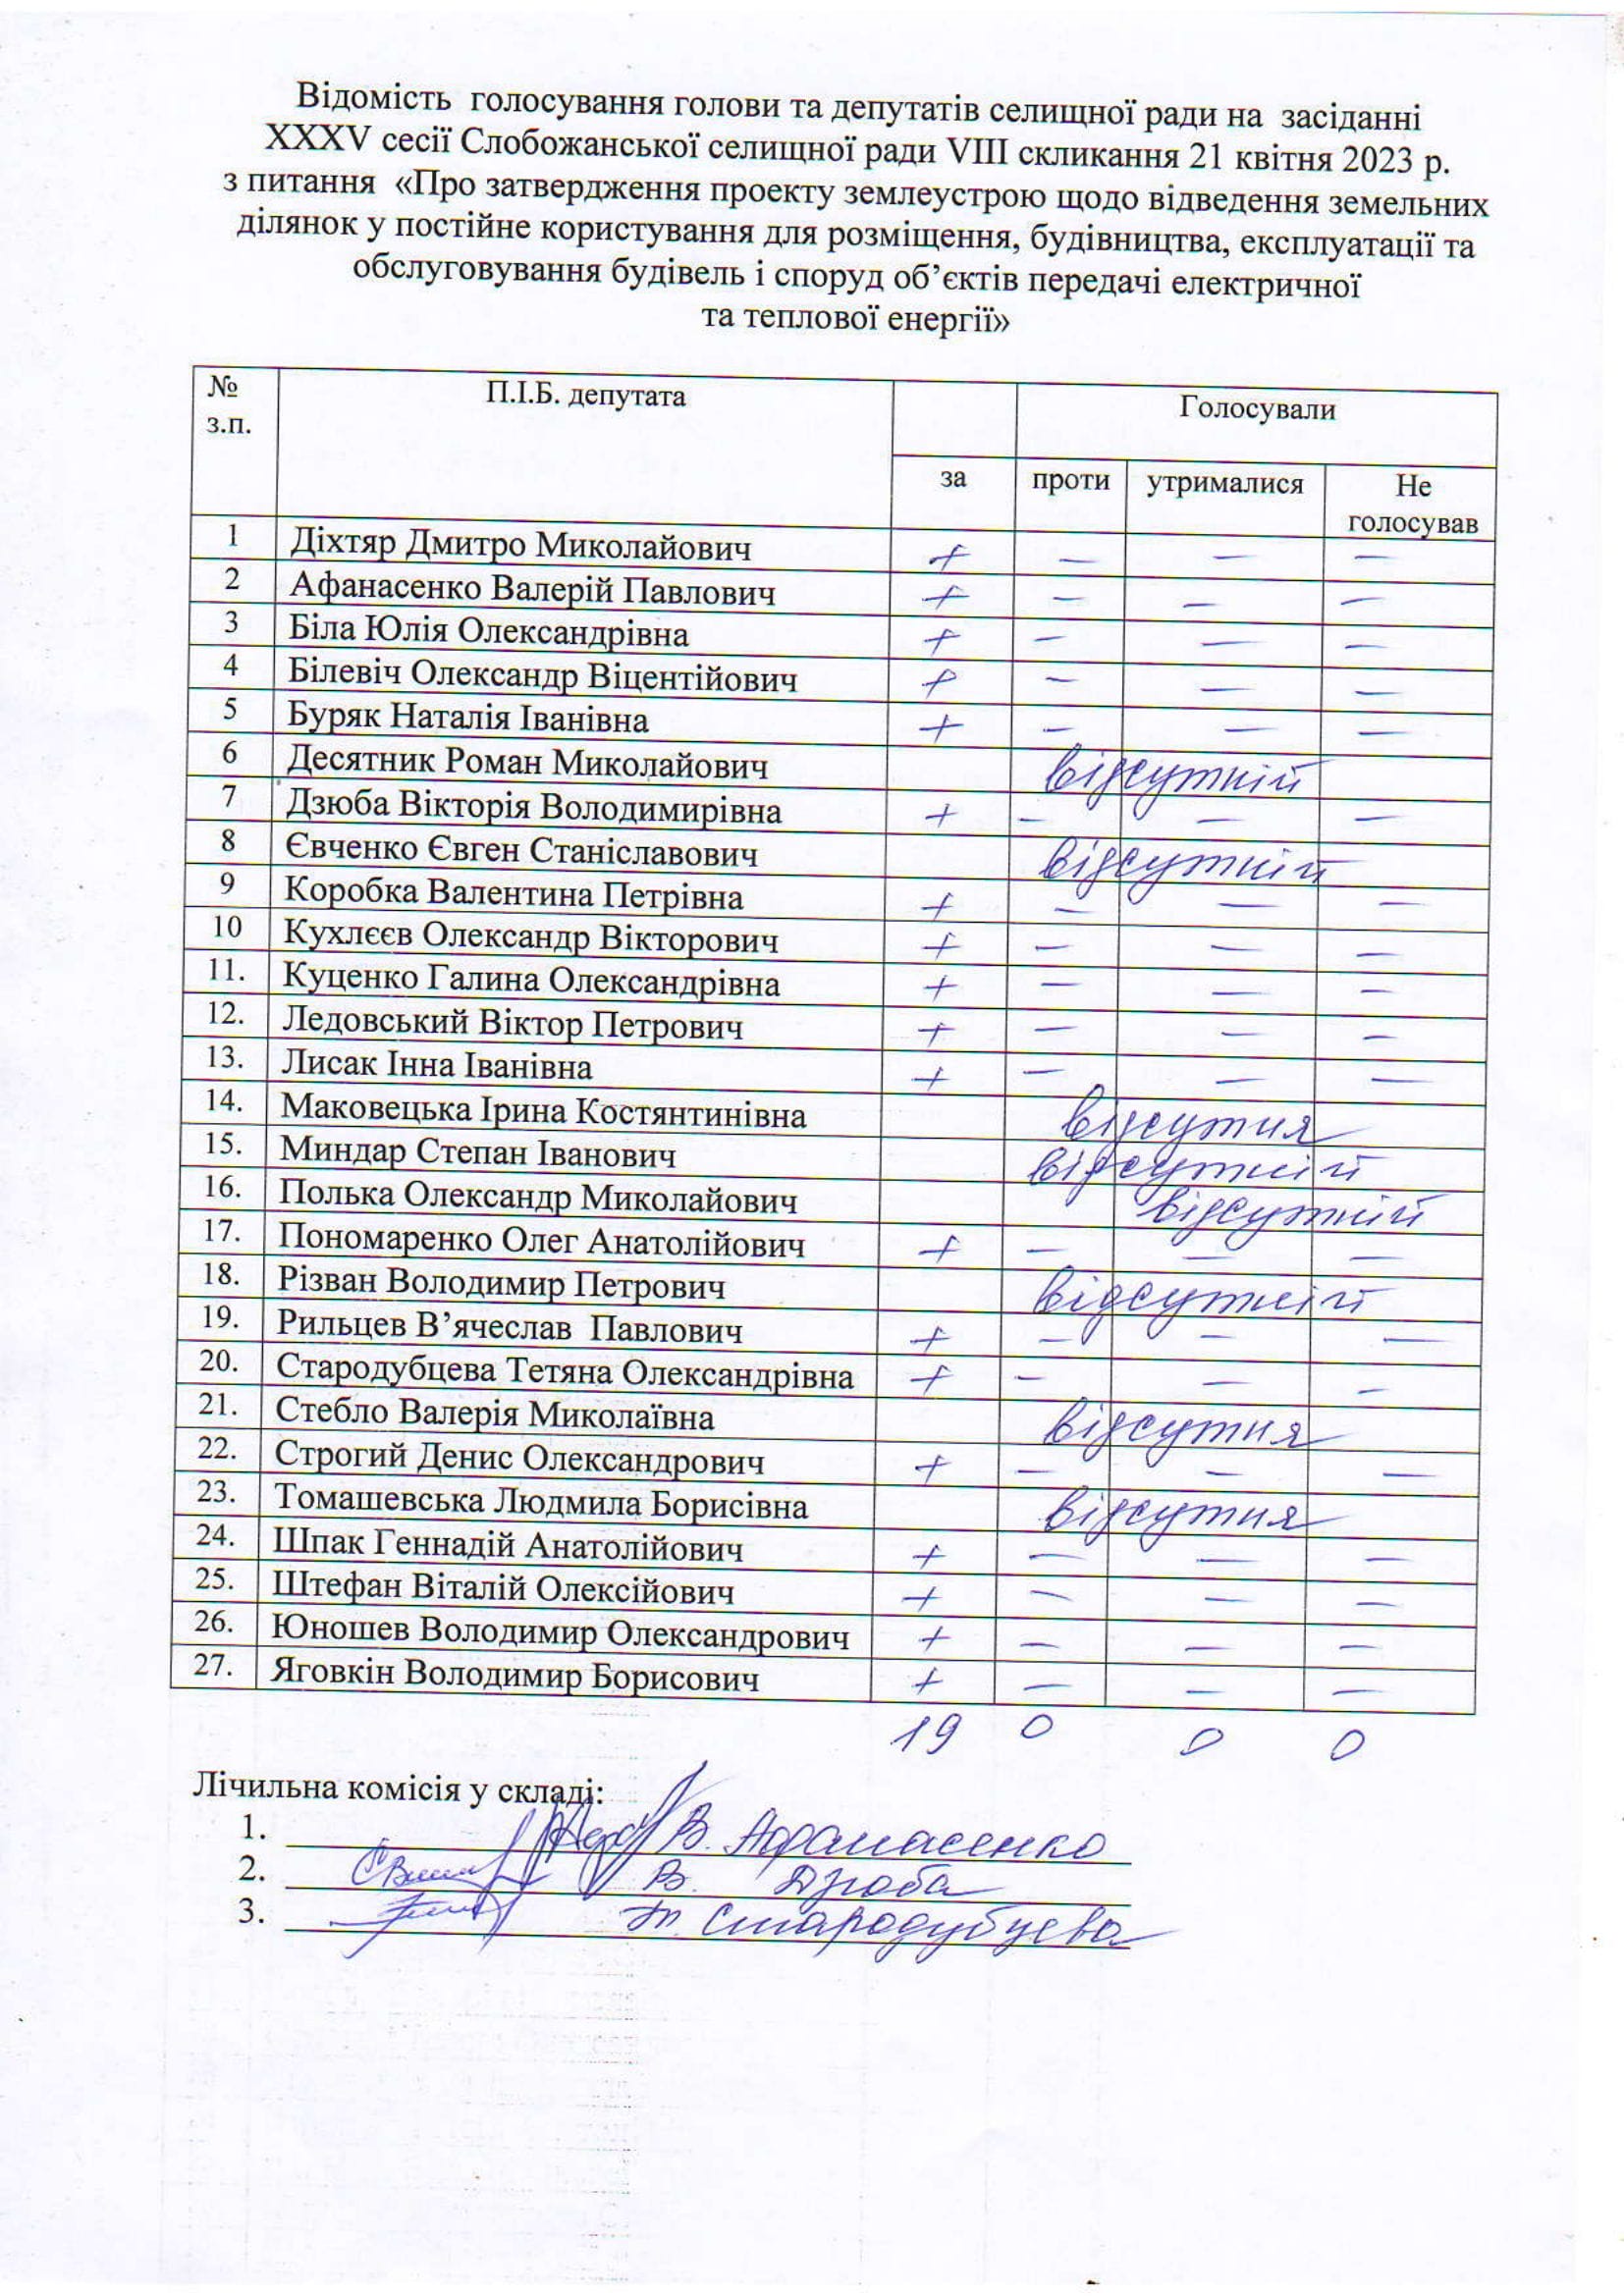 Відомість голосування голови та депутатів селищної ради на засіданні
XXXV сесії Слобожанської селищної ради VIII скликання 21 квітня 2023 р.
з питання «Про затвердження проекту землеустрою щодо відведення земельних
ділянок у постійне користування для розміщення, будівництва, експлуатації та
обслуговування будівель і споруд об’єктів передачі електричної
та теплової енергії»
№ з.п. П.І.Б. депутата Голосували
за проти утрималися Не голосував
1 Діхтяр Дмитро Миколайович + — — —
2 Афанасенко Валерій Павлович + — — —
3 Біла Юлія Олександрівна + — — —
4 Білевіч Олександр Віцентійович + — — —
5 Буряк Наталія Іванівна + — — —
6 Десятник Роман Миколайович відсутній
7 Дзюба Вікторія Володимирівна + — — —
8 Євченко Євген Станіславович відсутній
9 Коробка Валентина Петрівна + — — —
10 Кухлєєв Олександр Вікторович + — — —
11. Куценко Галина Олександрівна + — — —
12. Ледовський Віктор Петрович + — — —
13. Лисак Інна Іванівна + — — —
14. Маковецька Ірина Костянтинівна відсутня
15. Миндар Степан Іванович відсутній
16. Полька Олександр Миколайович відсутній
17. Пономаренко Олег Анатолійович + — — —
18. Різван Володимир Петрович відсутній
19. Рильцев В’ячеслав Павлович + — — —
20. Стародубцева Тетяна Олександрівна + — — —
21. Стебло Валерія Миколаївна відсутня
22. Строгий Денис Олександрович + — — —
23. Томашевська Людмила Борисівна відсутня
24. Шпак Геннадій Анатолійович + — — —
25. Штефан Віталій Олексійович + — — —
26. Юношев Володимир Олександрович + — — —
27. Яговкін Володимир Борисович + — — —
19 0 0 0
Лічильна комісія у складі:
1. В. Афанасенко
2. В. Дзюба
3. Т. Стародубцева